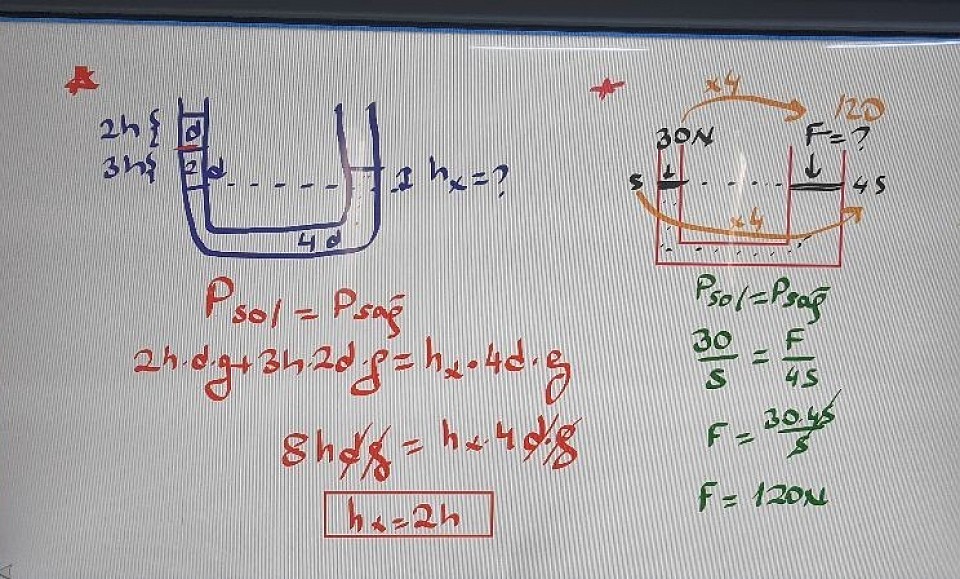 2h { d
3h { 2d
hx = ?
4d
Psol = Psağ
2h.d.g + 3h.2d.g = hx.4d.g
8hdg = hx.4d.g
hx = 2h
x4
120
30N F = ?
S 4S
x4
Psol = Psağ
30/S = F/4S
F = 30.4S/S
F = 120N